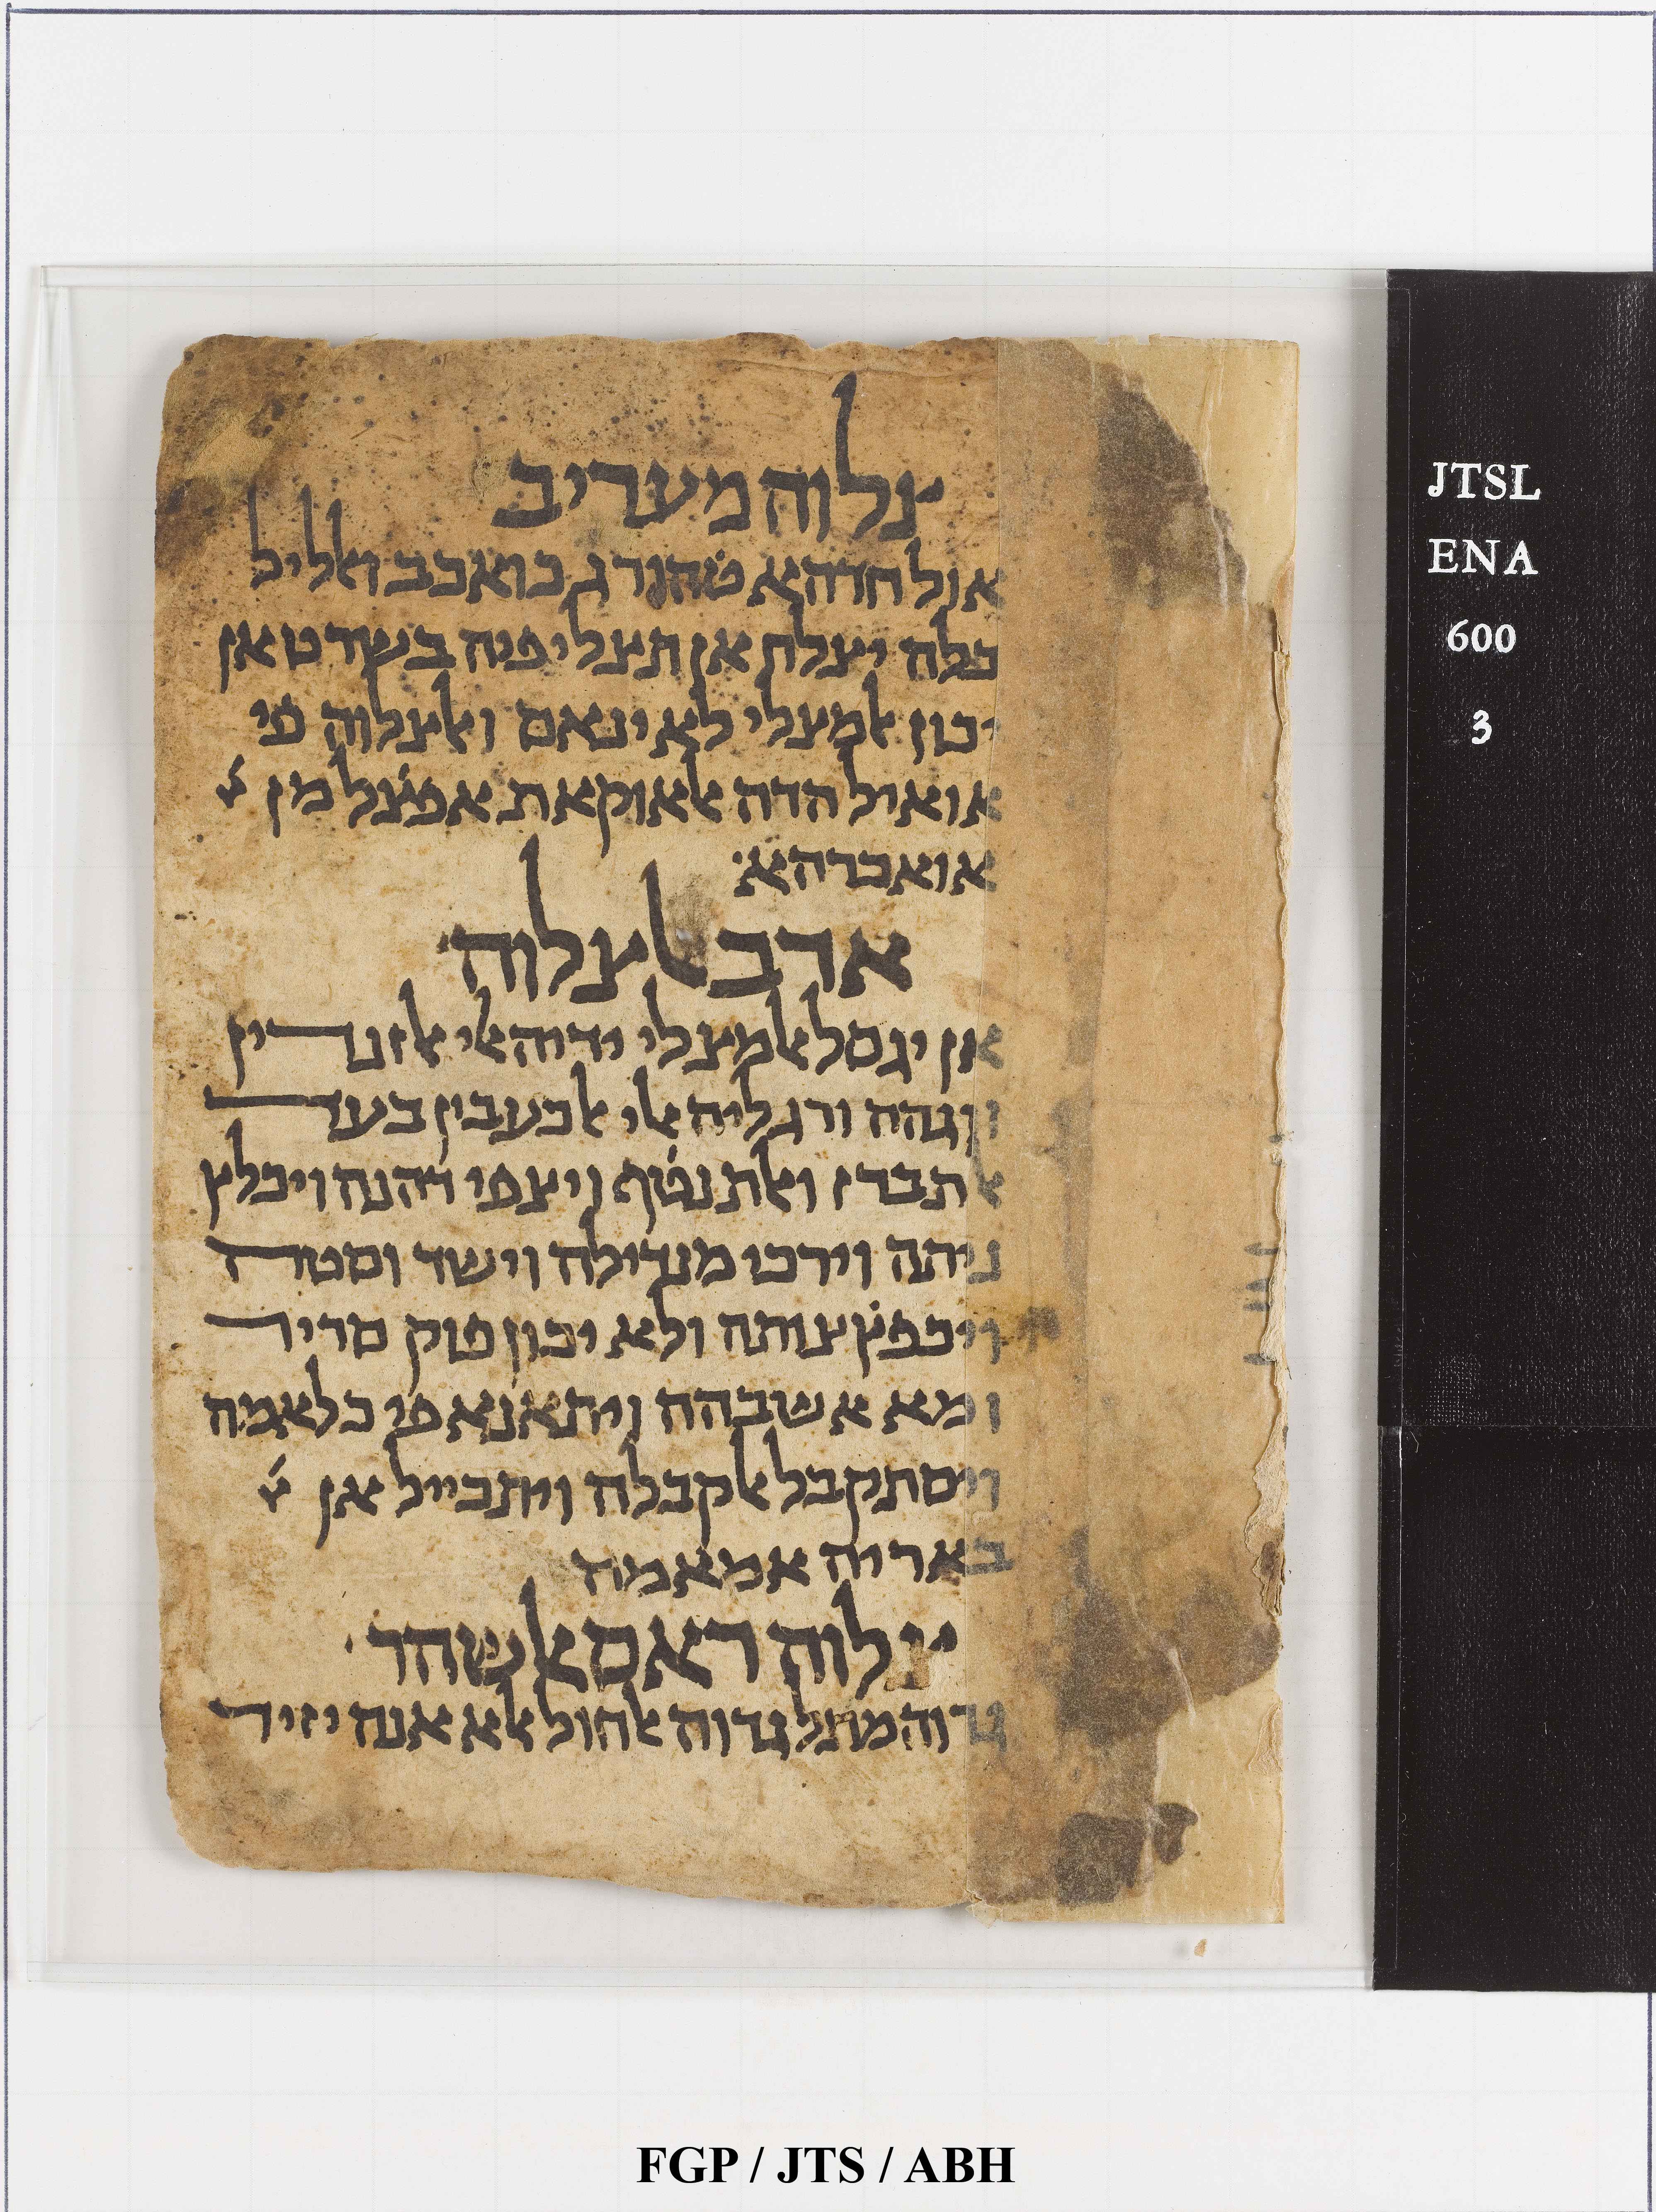 צלוה מעריב
אול חדהא טהור ג כואכב ואליל
כלה יצלח אן תצלי פיה בשרט אן
יכון אלמצלי לא ינאם ואלצלוה פי
אואיל הדה אלאוקאת אפצל מן
אואכרהא
אדב אלצלוה
אן יגסל אלמצלי ידיה אלי אלזנדין
ווגהה ורגליה אלי אלכעבין בעד
אלתברז ואלתנטף ויצפי דהנה ויכלץ
ניתה וירכו מנדילה וישד וסטה
ויכפץ צותה ולא יכון פוק סריר
ומא אשבהה ויתאנא פי כלאמה
ויסתקבל אלקבלה ויתכייל אן
באריה אמאמה
צלוה ראס אלשהר
גדוה מתל גדוה אלחול אלא אנה יזיד
JTSL
ENA
600
3
FGP / JTS / ABH